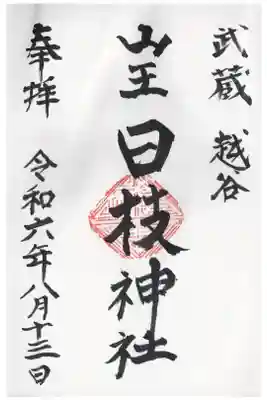 武蔵 越谷
山王 日枝神社
奉拝
令和六年八月十三日